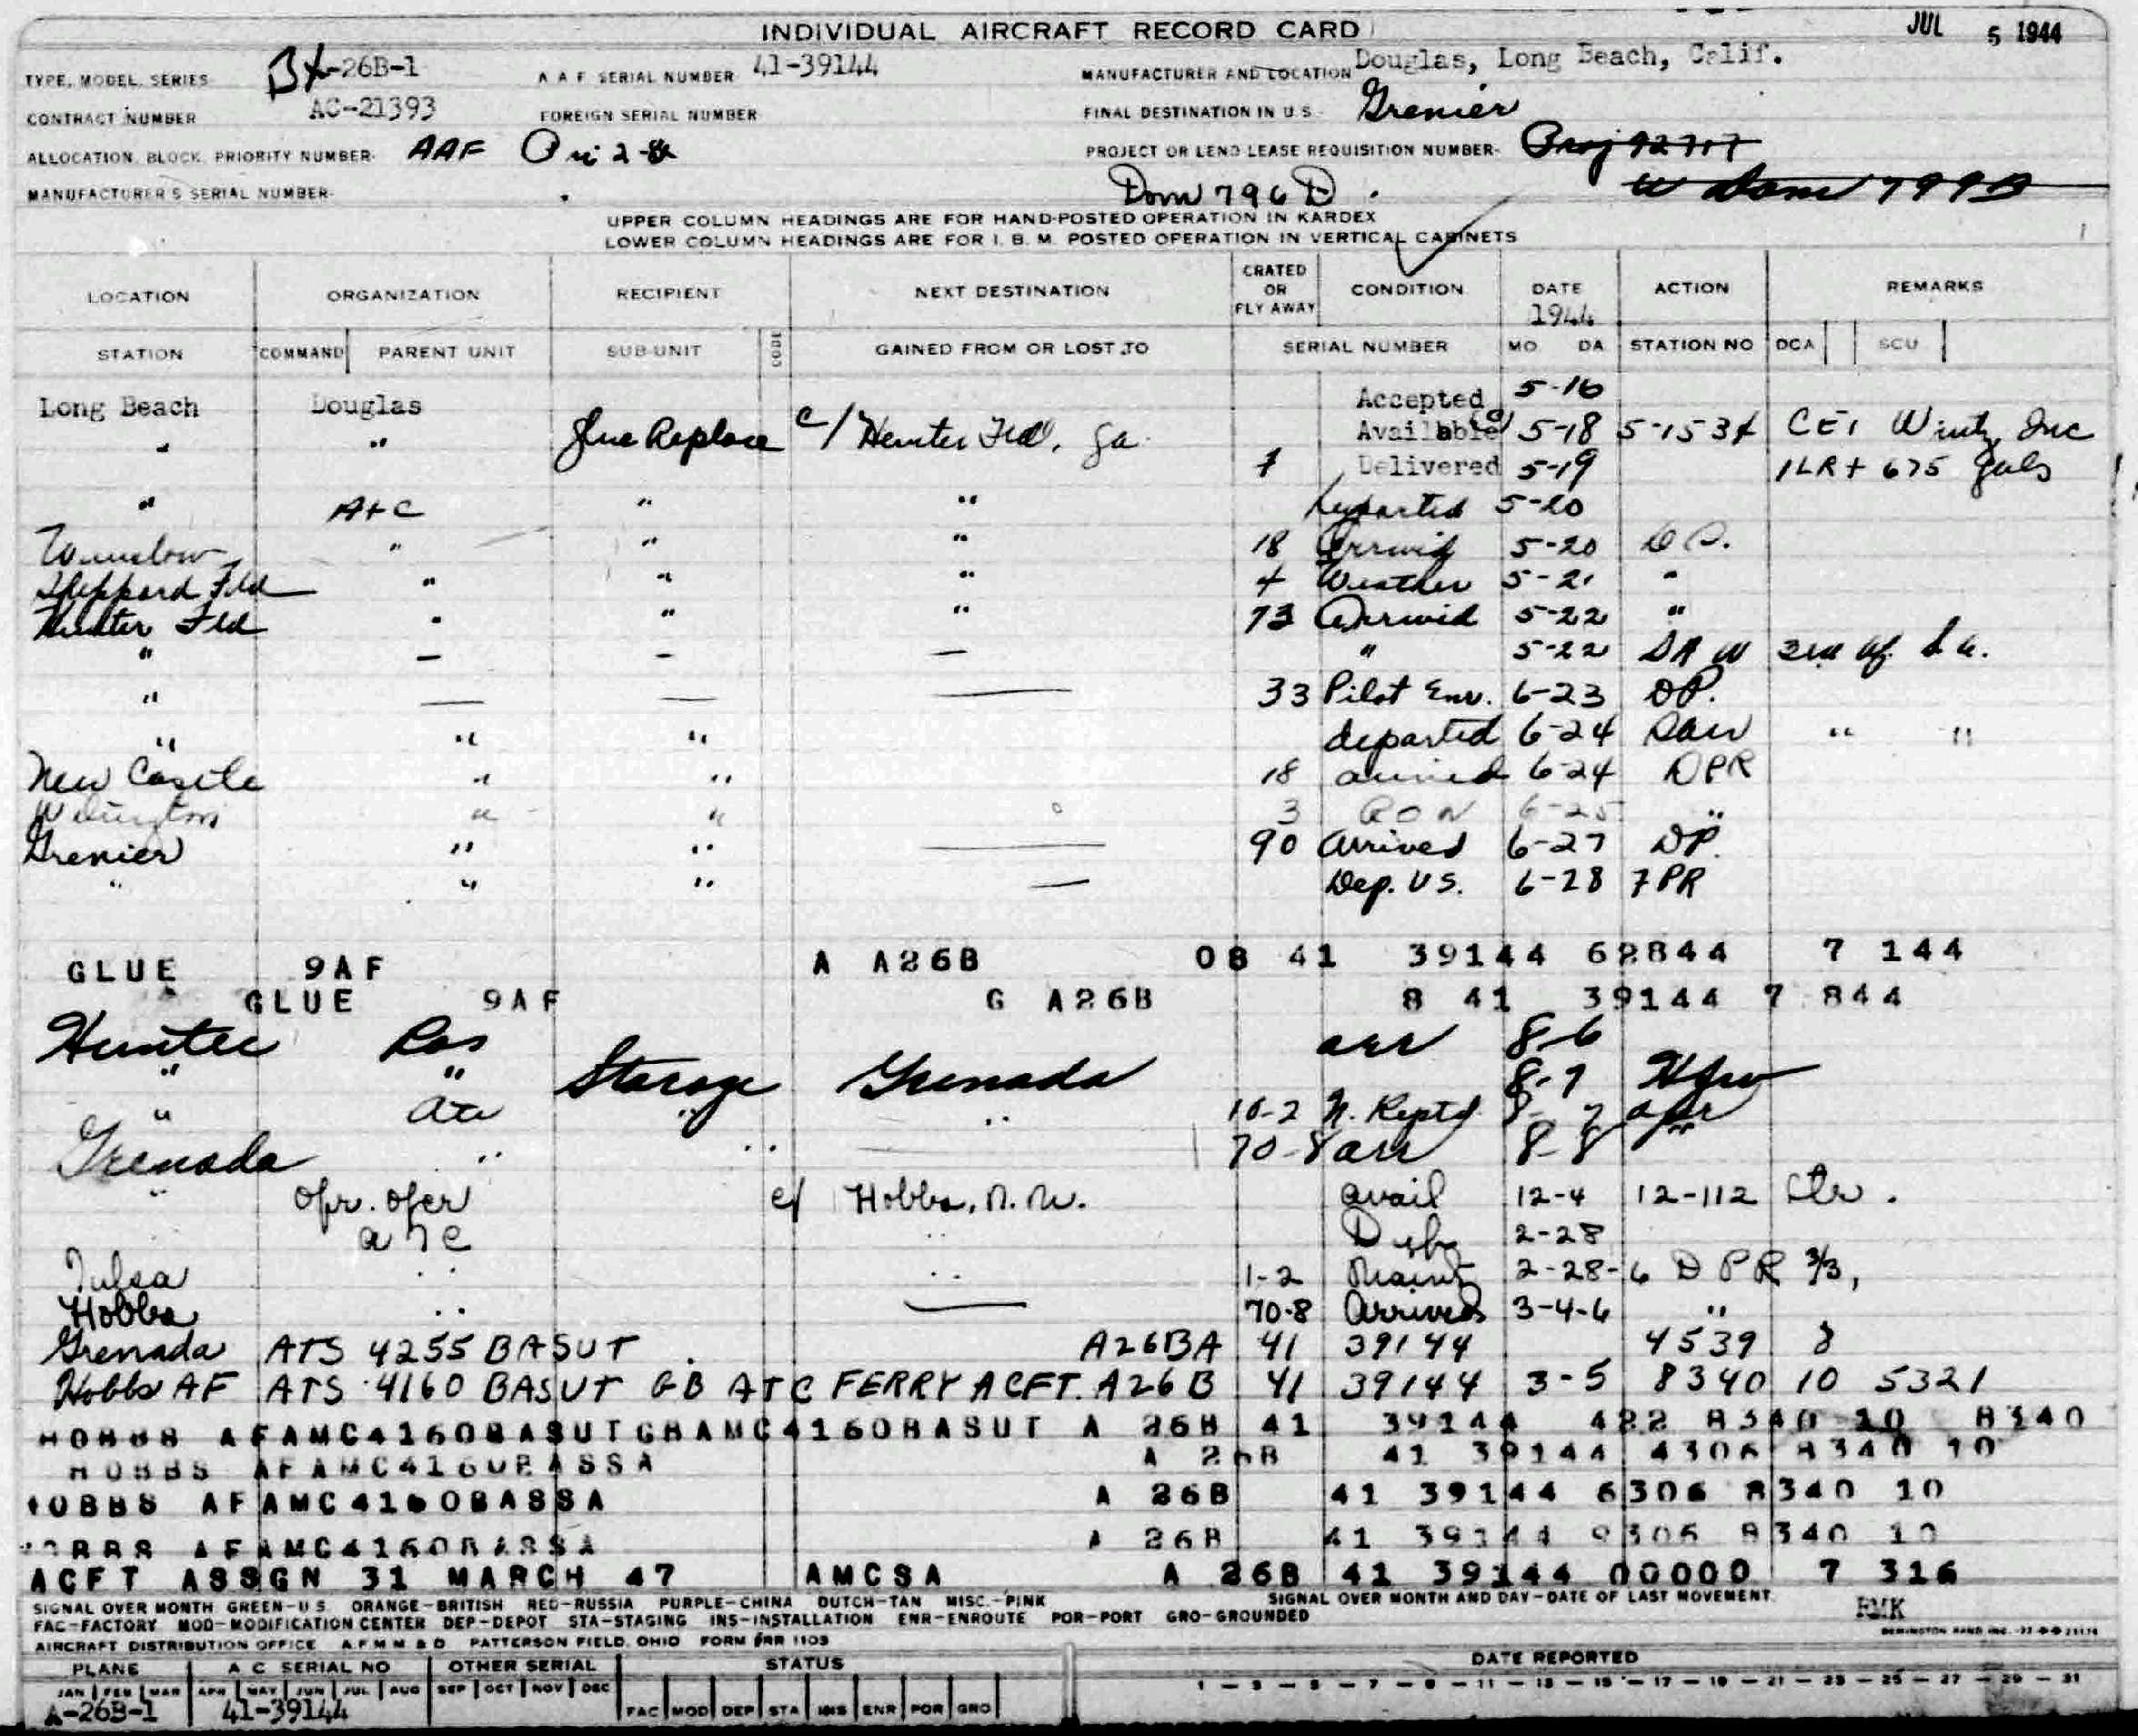 INDIVIDUAL AIRCRAFT RECORD CARD
JUL 5 1944
TYPE, MODEL, SERIES -26B-1 A A F SERIAL NUMBER 41-39144 MANUFACTURER AND LOCATION Douglas, Long Beach, Calif.
CONTRACT NUMBER AC-21393 FOREIGN SERIAL NUMBER FINAL DESTINATION IN U S Grenier
ALLOCATION, BLOCK, PRIORITY NUMBER- AAF PROJECT OR LEND LEASE REQUISITION NUMBER- Proj 92717
MANUFACTURER'S SERIAL NUMBER- Dom 796 D
UPPER COLUMN HEADINGS ARE FOR HAND-POSTED OPERATION IN KARDEX
LOWER COLUMN HEADINGS ARE FOR I. B. M. POSTED OPERATION IN VERTICAL CABINETS
LOCATION ORGANIZATION RECIPIENT NEXT DESTINATION CRATED OR FLY AWAY CONDITION DATE 1944 ACTION REMARKS
STATION COMMAND PARENT UNIT SUB-UNIT GAINED FROM OR LOST TO SERIAL NUMBER MO DA STATION NO DCA SCU
Long Beach Douglas Accepted 5-16
" " Glue Replace c/ Hunter Fld, Ga. Available 5-18 5-153 CE1 Inc
Delivered 5-19 1LR+ 675 gals
" " " departed 5-20
Winslow " " " 18 5-20
Sheppard Fld " " " 4 Weather 5-21 "
Hunter Fld " " " 73 Arrived 5-22 "
" — — — " 5-22
" — — — 33 Pilot Enr. 6-23 DP.
" " " departed 6-24 " "
New Castle " " 18 arrived 6-24 DPR
" " 3 RON 6-25 "
Grenier " " — 90 Arrived 6-27 DP.
" " " — Dep. U S. 6-28 7PR
GLUE 9AF A A26B 08 41 39144 62844 7 144
GLUE 9AF G A26B 8 41 39144 7 844
Hunter arr 8-6
" " Storage Grenada 8-7
" " " 10-2 N. Reptd
Grenada " " 70-8 arr 8-8
" Opr. ofcr c/ Hobbs, N. M. avail 12-4 12-112
2-28
Tulsa " " 1-2 Maint 2-28-6 DPR 3/3,
Hobbs " — 70-8 Arrived 3-4-6 "
Grenada ATS 4255 BASUT A26BA 41 39144 4539 8
Hobbs AF ATS 4160 BASUT GB ATC FERRY ACFT. A26B 41 39144 3-5 8340 10 5321
HOBBS AFAMC4160BASUTGBAMC4160BASUT A 26B 41 39144 422 8340 10 8340
HOBBS AFAMC4160BASSA A 26B 41 39144 4306 8340 10
HOBBS AFAMC4160BASSA A 26B 41 39144 6306 8340 10
AFAMC4160BASSA A 26B 41 39144 9306 8340 10
ACFT ASSGN 31 MARCH 47 AMCSA A 26B 41 39144 00000 7 316
SIGNAL OVER MONTH GREEN-U S ORANGE-BRITISH RED-RUSSIA PURPLE-CHINA DUTCH-TAN MISC.-PINK SIGNAL OVER MONTH AND DAY-DATE OF LAST MOVEMENT.
FAC-FACTORY MOD-MODIFICATION CENTER DEP-DEPOT STA-STAGING INS-INSTALLATION ENR-ENROUTE POR-PORT GRO-GROUNDED
AIRCRAFT DISTRIBUTION OFFICE A.F.M.M & D PATTERSON FIELD, OHIO FORM 1103
PLANE A C SERIAL NO OTHER SERIAL STATUS DATE REPORTED
JAN FEB MAR APR MAY JUN JUL AUG SEP OCT NOV DEC 1 - 3 - 5 - 7 - 9 - 11 - 13 - 15 - 17 - 19 - 21 - 23 - 25 - 27 - 29 - 31
A-26B-1 41-39144 FAC MOD DEP STA INS ENR POR GRO